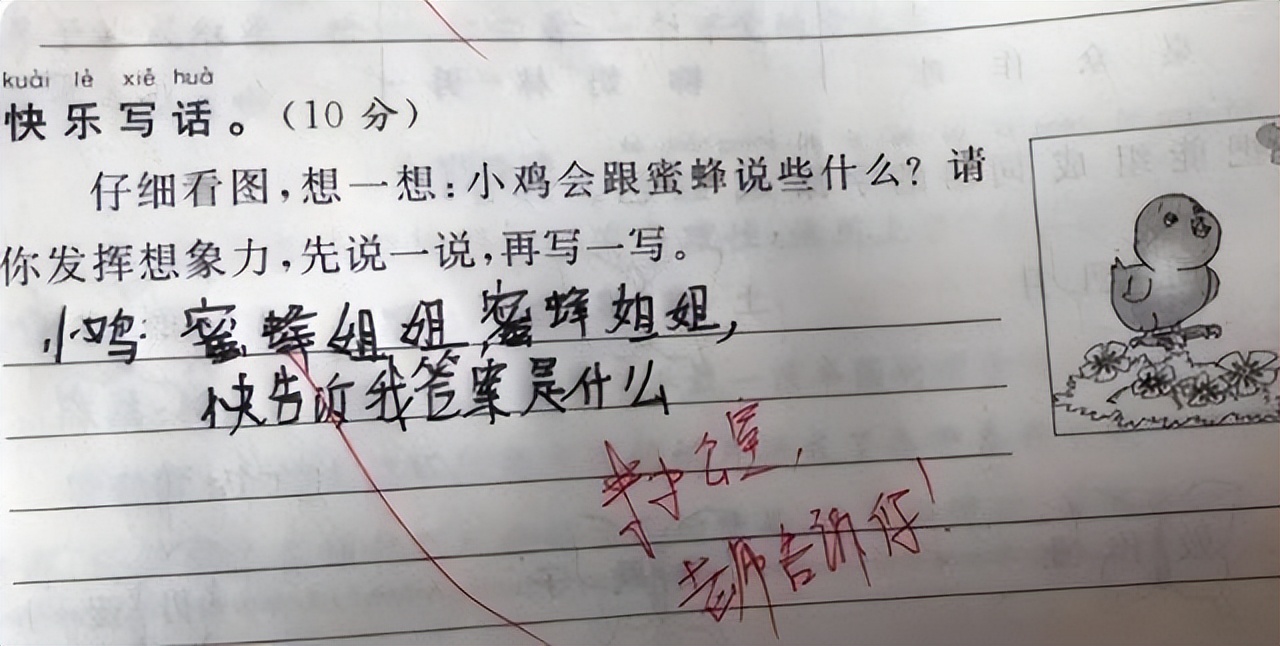 kuài lè xiě huà
快乐写话。（10 分）
仔细看图，想一想：小鸡会跟蜜蜂说些什么？请
你发挥想象力，先说一说，再写一写。
小鸡：蜜蜂姐姐，蜜蜂姐姐，
快告诉我答案是什么
来办公室，
老师告诉你！